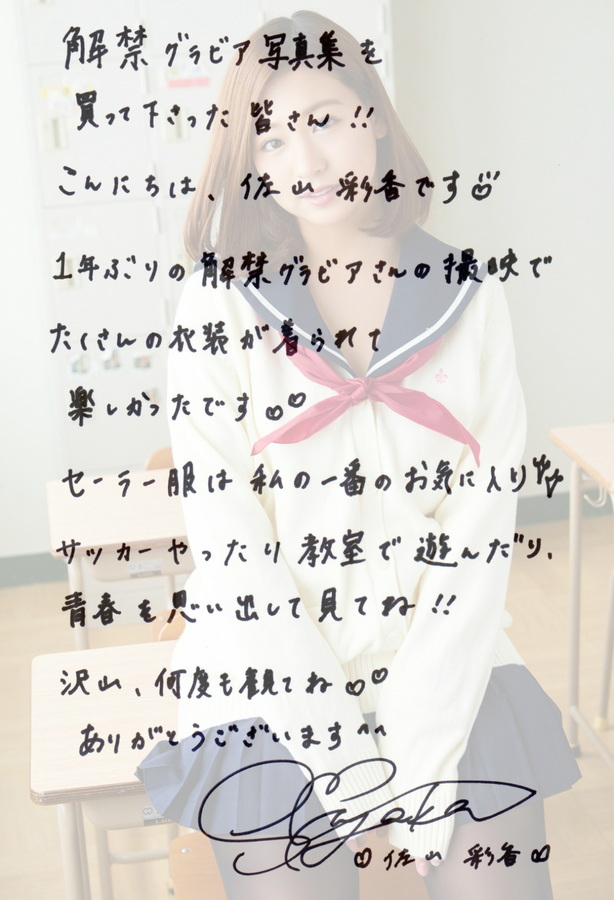 解禁グラビア写真集を
買って下さった皆さん!!
こんにちは、佐山彩香です
1年ぶりの解禁グラビアさんの撮映で
たくさんの衣装が着られて
楽しかったです♡♡
セーラー服は私の一番のお気に入り
サッカーやったり教室で遊んだり、
青春を思い出して見てね!!
沢山、何度も観てね♡♡
ありがとうございます^^
Sayaka
♡佐山 彩香♡